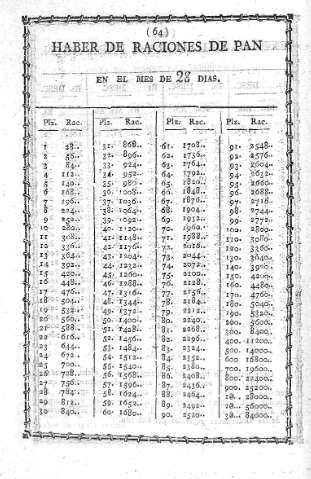 (64)
HABER DE RACIONES DE PAN
EN EL MES DE 28 DIAS.
Plz. Rac. Plz. Rac. Plz. Rac. Plz. Rac.
1 28.. 31. 868.. 61. 1708.. 91. 2548..
2 56.. 32. 896.. 62. 1736.. 92. 2576..
3 84.. 33. 924.. 63. 1764.. 93. 2604..
4 112.. 34. 952.. 64. 1792.. 94. 2632..
5 140.. 35. 980.. 65. 1820.. 95. 2660..
6 168.. 36. 1008.. 66. 1848.. 96. 2688..
7 196.. 37. 1036.. 67. 1876.. 97. 2716..
8 224.. 38. 1064.. 68. 1904.. 98. 2744..
9 252.. 39. 1092.. 69. 1932.. 99. 2772..
10 280.. 40. 1120.. 70. 1960.. 100. 2800..
11 308.. 41. 1148.. 71. 1988.. 110. 3080..
12 336.. 42. 1176.. 72. 2016.. 120. 3360..
13 364.. 43. 1204.. 73. 2044.. 130. 3640..
14 392.. 44. 1232.. 74. 2072.. 140. 3920..
15 420.. 45. 1260.. 75. 2100.. 150. 4200..
16 448.. 46. 1288.. 76. 2128.. 160. 4480..
17 476.. 47. 1316.. 77. 2156.. 170. 4760..
18 504.. 48. 1344.. 78. 2184.. 180. 5040..
19 532.. 49. 1372.. 79. 2212.. 190. 5320..
20 560.. 50. 1400.. 80. 2240.. 200. 5600..
21 588.. 51. 1428.. 81. 2268.. 300. 8400..
22 616.. 52. 1456.. 82. 2296.. 400. 11200..
23 644.. 53. 1484.. 83. 2324.. 500. 14000..
24 672.. 54. 1512.. 84. 2352.. 600. 16800..
25 700.. 55. 1540.. 85. 2380.. 700. 19600..
26 728.. 56. 1568.. 86. 2408.. 800. 22400..
27 756.. 57. 1596.. 87. 2436.. 900. 25200..
28 784.. 58. 1624.. 88. 2464.. 10. 28000..
29 812.. 59. 1652.. 89. 2492.. 20. 56000..
30 840.. 60. 1680.. 90. 2520.. 30. 84000..